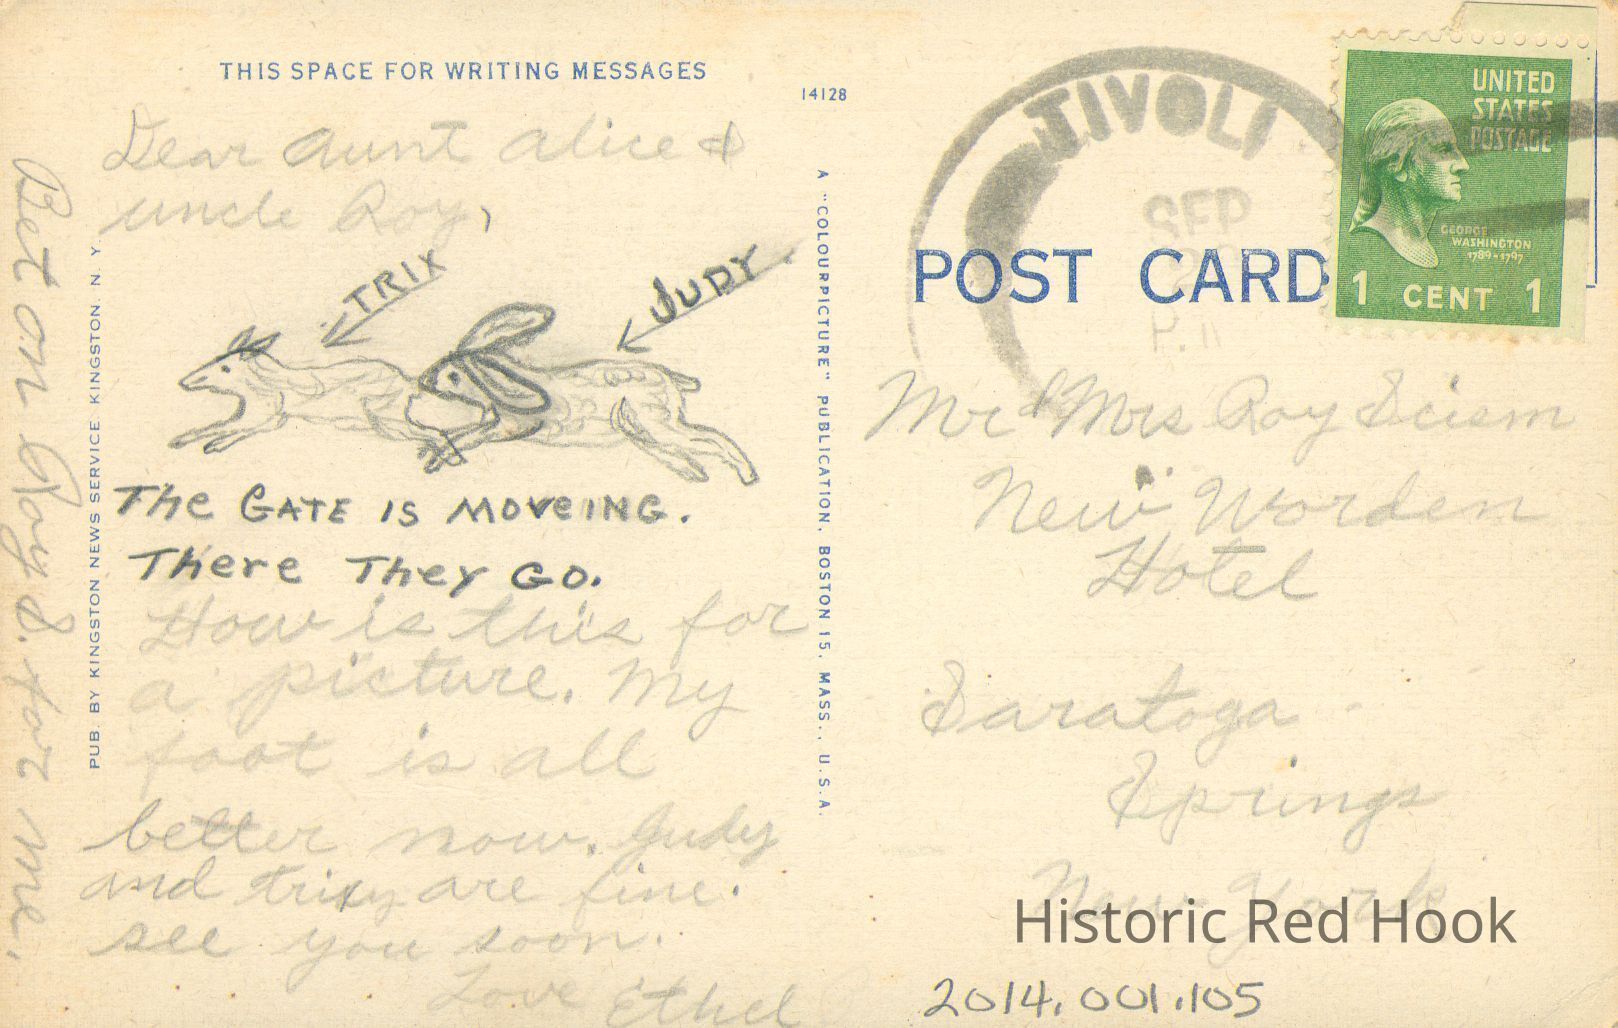 THIS SPACE FOR WRITING MESSAGES
14128
Dear Aunt Alice &
Uncle Roy,
TRIX
JUDY.
The GATE IS MOVEING.
There They GO.
How is this for
a picture. My
foot is all
better now. Judy
and trixy are fine.
see you soon.
Love Ethel
Bet on Gray 8. for me.
PUB. BY KINGSTON NEWS SERVICE KINGSTON, N. Y.
A "COLOURPICTURE" PUBLICATION, BOSTON 15, MASS., U.S.A.
TIVOLI
SEP
POST CARD
UNITED
STATES
POSTAGE
GEORGE
WASHINGTON
1789-1797
1 CENT 1
Mr & Mrs Roy Scism
New Worden
Hotel
Saratoga
Springs
New York
Historic Red Hook
2014.001.105